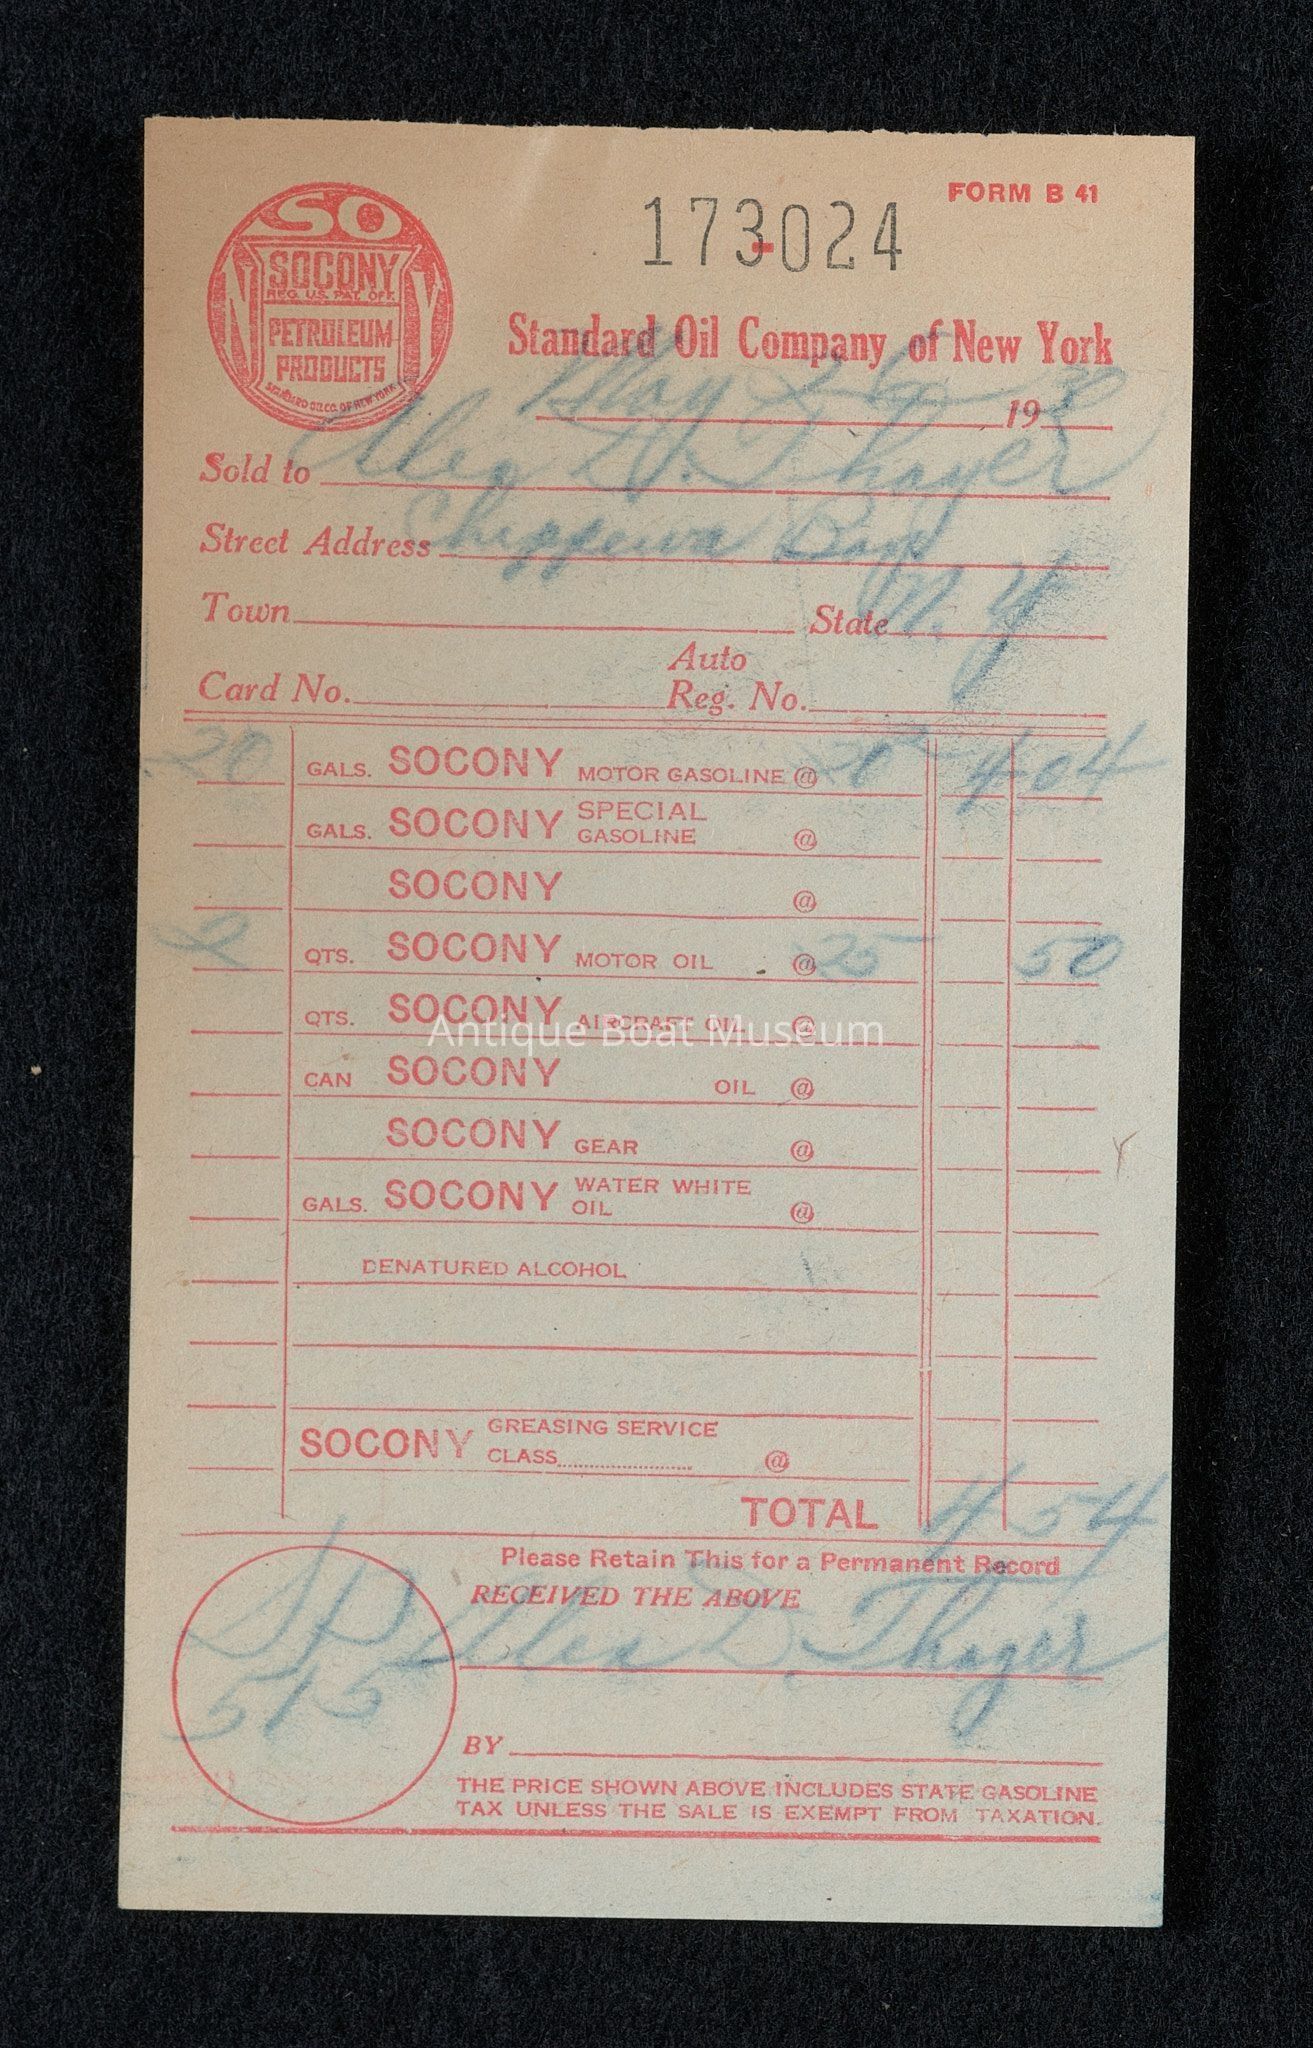 FORM B 41
173024
SO
N Y
SOCONY
REG. U.S. PAT. OFF.
PETROLEUM
PRODUCTS
STANDARD OIL CO. OF NEW YORK
Standard Oil Company of New York
May 26 1930
Sold to Alex D. Thayer
Street Address Chippewa Bay
Town State N. Y
Auto
Card No. Reg. No.
20 GALS. SOCONY MOTOR GASOLINE @ 20² 4 04
GALS. SOCONY SPECIAL GASOLINE @
SOCONY @
2 QTS. SOCONY MOTOR OIL @ 25 50
QTS. SOCONY AIRCRAFT OIL @
Antique Boat Museum
CAN SOCONY OIL @
SOCONY GEAR @
GALS. SOCONY WATER WHITE OIL @
DENATURED ALCOHOL
SOCONY GREASING SERVICE
CLASS @
TOTAL 4 54
Please Retain This for a Permanent Record
RECEIVED THE ABOVE
Alex D. Thayer
515
BY
THE PRICE SHOWN ABOVE INCLUDES STATE GASOLINE
TAX UNLESS THE SALE IS EXEMPT FROM TAXATION.